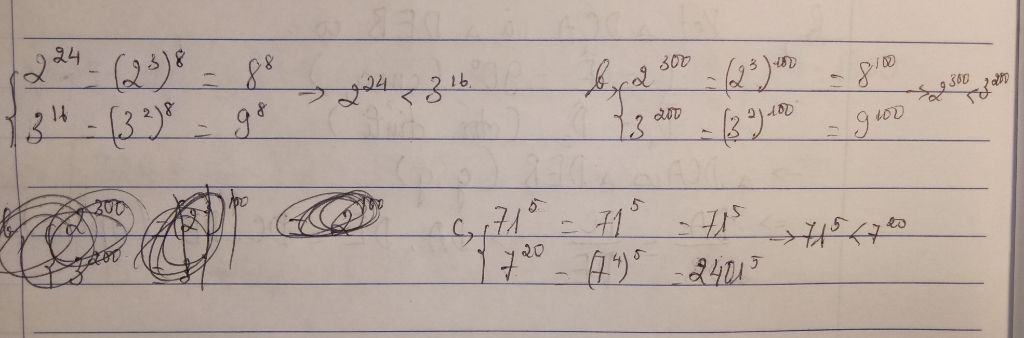 2^24 = (2^3)^8 = 8^8
3^16 = (3^2)^8 = 9^8
→ 2^24 < 3^16.
b, 2^300 = (2^3)^100 = 8^100
3^200 = (3^2)^100 = 9^100
→ 2^300 < 3^200
c, 71^5 = 71^5 = 71^5
7^20 = (7^4)^5 = 2401^5
→ 71^5 < 7^20